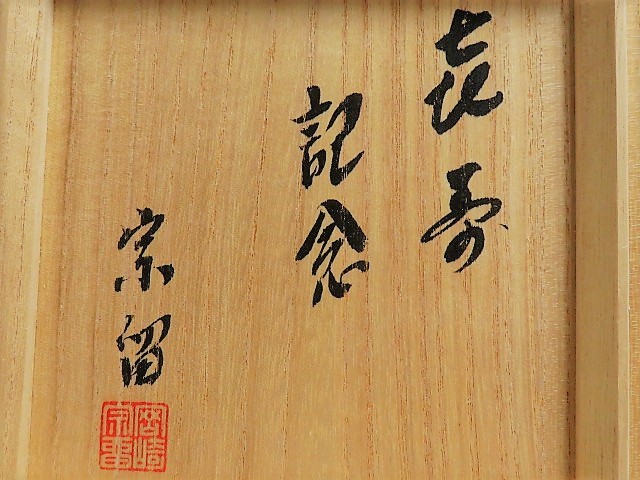 㐂寿
記念
宗留